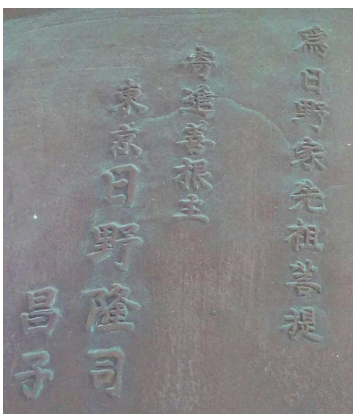 為日野家先祖菩提
寄進善根主
東京日野隆司
昌子